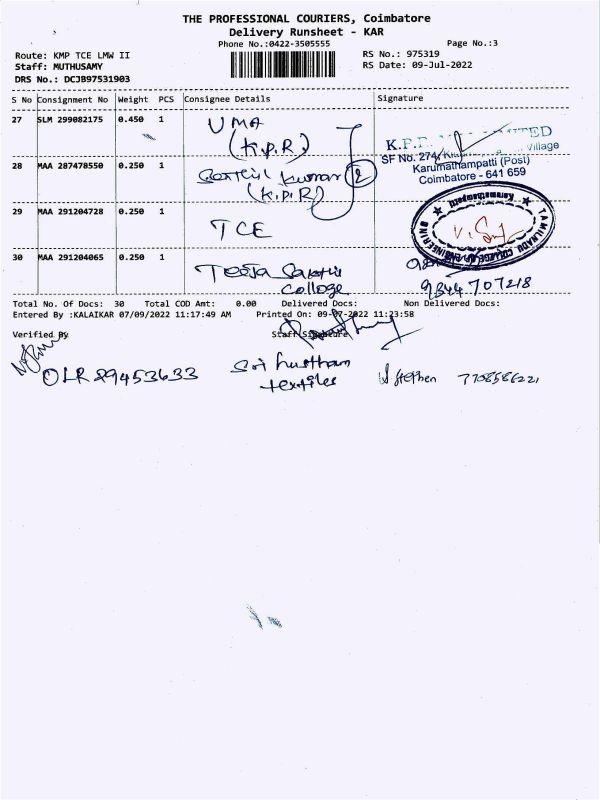 THE PROFESSIONAL COURIERS, Coimbatore
Delivery Runsheet - KAR
Phone No.:0422-3505555
Page No.:3
Route: KMP TCE LMW II
RS No.: 975319
Staff: MUTHUSAMY
RS Date: 09-Jul-2022
DRS No.: DCJB97531903
S No Consignment No Weight PCS Consignee Details Signature
27 SLM 299082175 0.450 1 UMA
(K.P.R)
SF No. 274 Village
Karumathampatti (Post)
Coimbatore - 641 659
28 MAA 287478550 0.250 1 Kumar 2
(K.P.R)
29 MAA 291204728 0.250 1 TCE
TAMILNADU COLLEGE OF ENGINEERING
Karumathampatti
30 MAA 291204065 0.250 1 Teeja Sakthi
College
9844707218
Total No. Of Docs: 30 Total COD Amt: 0.00 Delivered Docs: Non Delivered Docs:
Entered By :KALAIKAR 07/09/2022 11:17:49 AM Printed On: 09-07-2022 11:23:58
Verified By Staff Signature
OLR 89453633
Sri
textiles
Stephen 7708586221